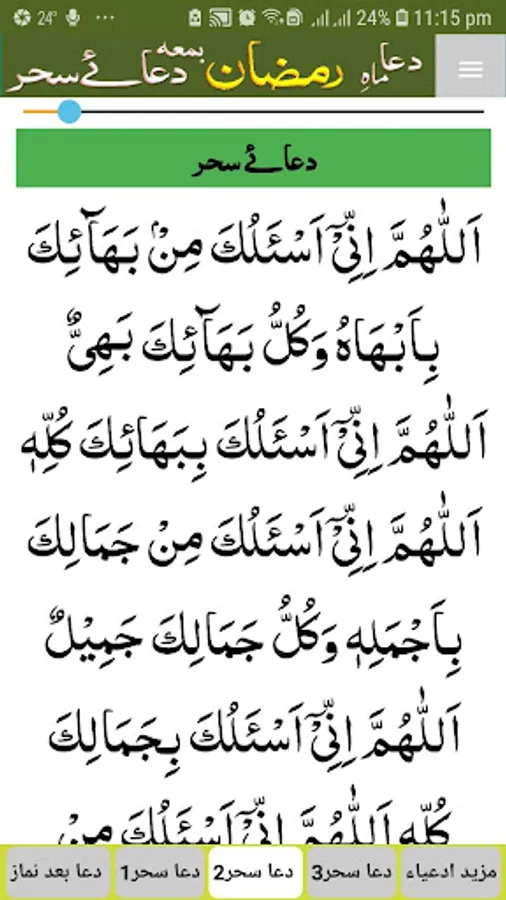 24° ... 24% 11:15 pm
دعا ماہِ رمضان بمعہ دعائے سحر
دعائے سحر
اَللّٰهُمَّ اِنِّیْۤ اَسْئَلُكَ مِنْۢ بَهَآئِكَ
بِاَبْهَاهُ وَكُلُّ بَهَآئِكَ بَهِیٌّ
اَللّٰهُمَّ اِنِّیْۤ اَسْئَلُكَ بِبَهَائِكَ كُلِّهٖ
اَللّٰهُمَّ اِنِّیْۤ اَسْئَلُكَ مِنْ جَمَالِكَ
بِاَجْمَلِهٖ وَكُلُّ جَمَالِكَ جَمِیْلٌ
اَللّٰهُمَّ اِنِّیْۤ اَسْئَلُكَ بِجَمَالِكَ
كُلِّهٖ اَللّٰهُمَّ اِنِّیْۤ اَسْئَلُكَ مِنْ
مزید ادعیاء دعا سحر3 دعا سحر2 دعا سحر1 دعا بعد نماز